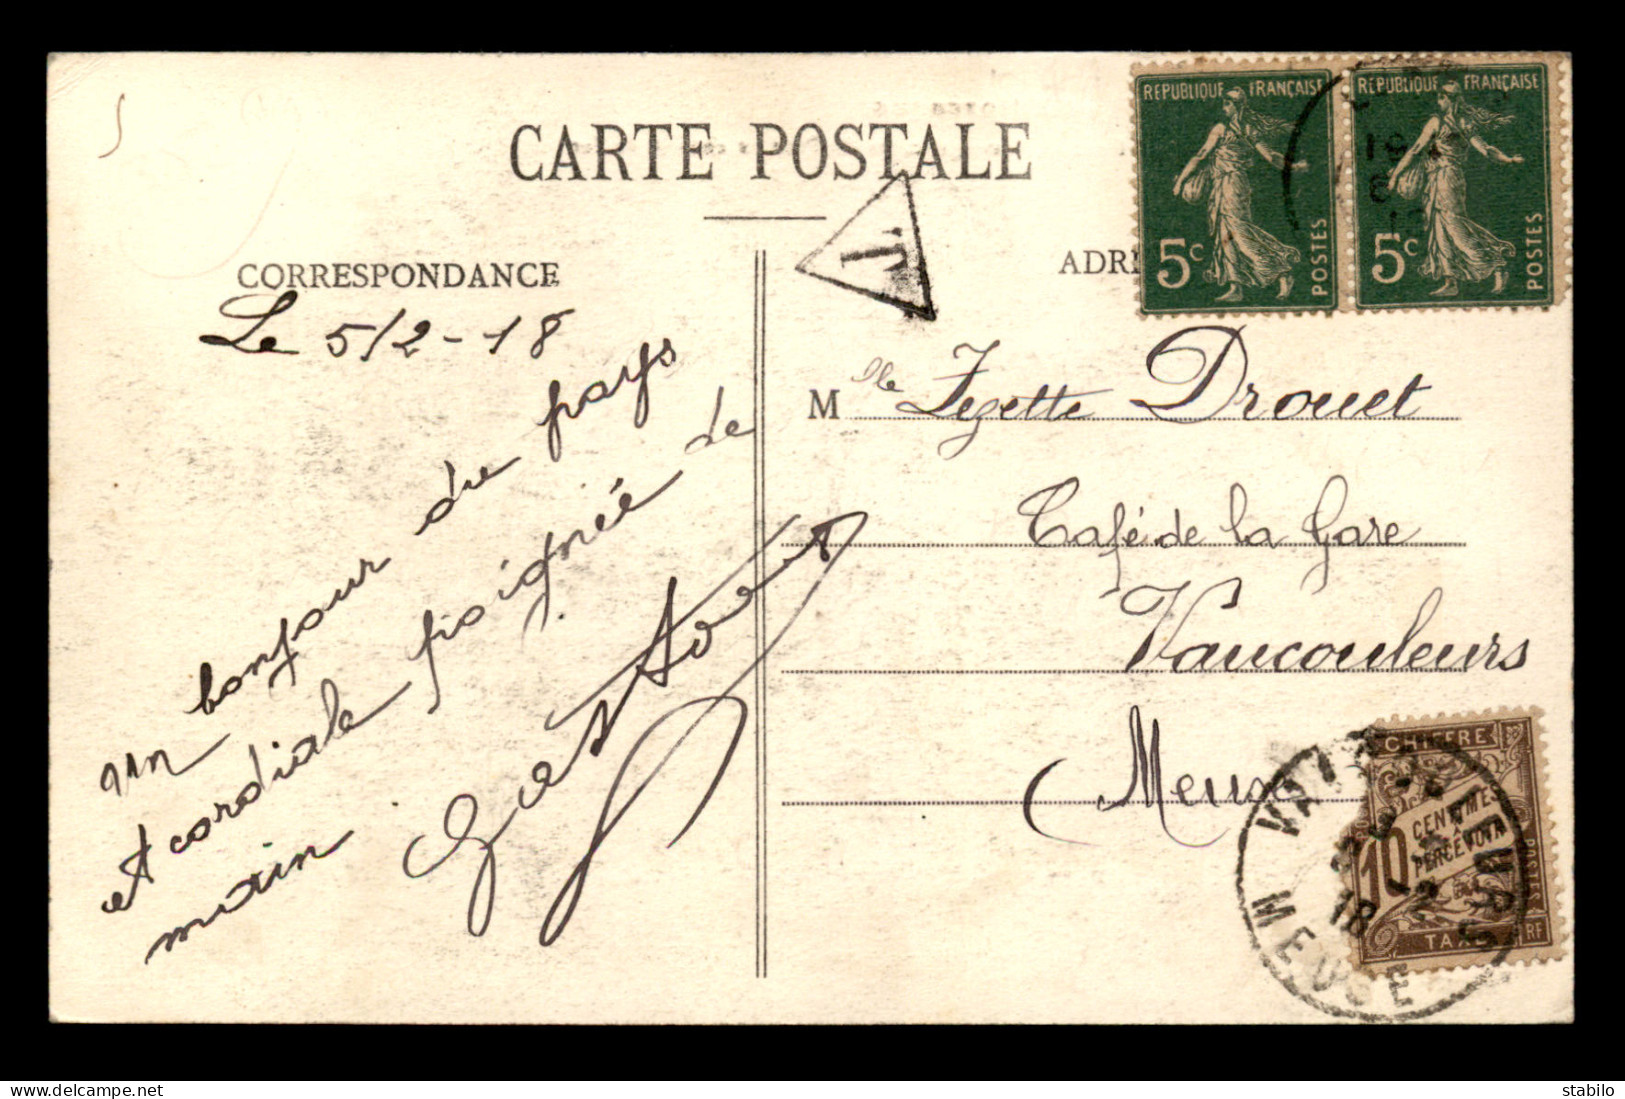 CARTE POSTALE
CORRESPONDANCE
ADR
RÉPUBLIQUE FRANÇAISE
5c
POSTES
RÉPUBLIQUE FRANÇAISE
5c
POSTES
T
Le 5/2-18
un bonjour du pays
et cordiale poignée de
main
Mlle Zezette Drouet
Café de la Gare
Vaucouleurs
(Meus
CHIFFRE
10 CENTIMES
À PERCEVOIR
TAXE
RF
POSTES
VAUCOULEURS
MEUSE
5-2
18
stabilo